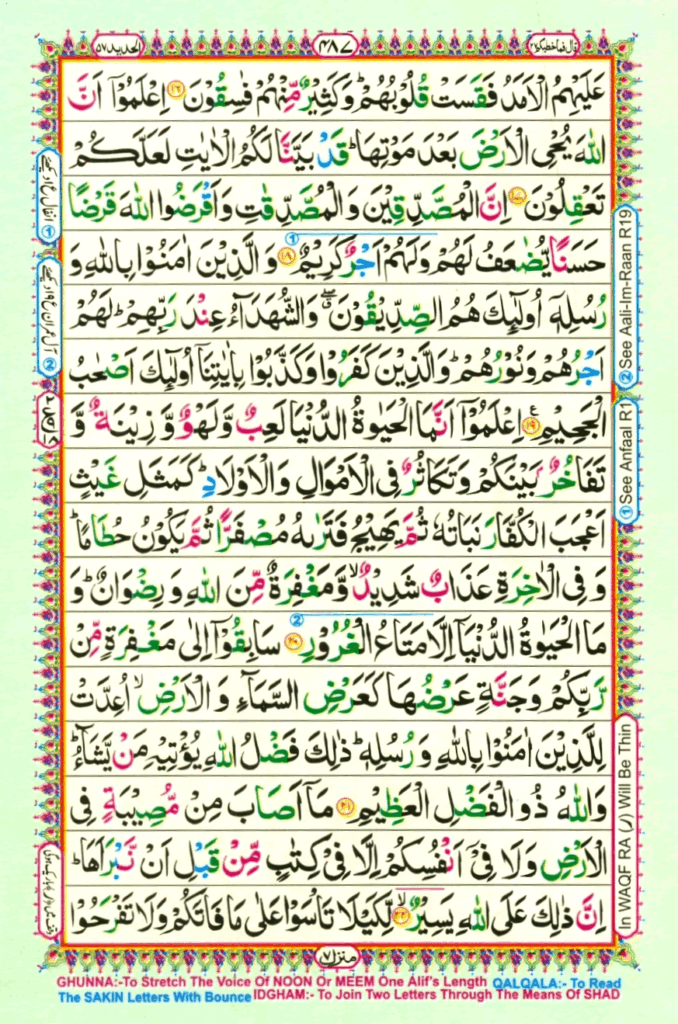 الحدید ۵۷
۴۸۷
قال فماخطبکم ۲۷
عَلَيْهِمُ الْاَمَدُ فَقَسَتْ قُلُوْبُهُمْ ؕ وَكَثِيْرٌ مِّنْهُمْ فٰسِقُوْنَ ۝۱۶ اِعْلَمُوْۤا اَنَّ
اللّٰهَ يُحْيِ الْاَرْضَ بَعْدَ مَوْتِهَا ؕ قَدْ بَيَّنَّا لَكُمُ الْاٰيٰتِ لَعَلَّكُمْ
تَعْقِلُوْنَ ۝۱۷ اِنَّ الْمُصَّدِّقِيْنَ وَالْمُصَّدِّقٰتِ وَاَقْرَضُوا اللّٰهَ قَرْضًا
حَسَنًا يُّضٰعَفُ لَهُمْ وَلَهُمْ اَجْرٌ كَرِيْمٌ ۝۱۸ وَالَّذِيْنَ اٰمَنُوْا بِاللّٰهِ وَ
رُسُلِهٖۤ اُولٰٓئِكَ هُمُ الصِّدِّيْقُوْنَ ۖۗ وَالشُّهَدَآءُ عِنْدَ رَبِّهِمْ ؕ لَهُمْ
اَجْرُهُمْ وَنُوْرُهُمْ ؕ وَالَّذِيْنَ كَفَرُوْا وَكَذَّبُوْا بِاٰيٰتِنَاۤ اُولٰٓئِكَ اَصْحٰبُ
الْجَحِيْمِ ۝۱۹ اِعْلَمُوْۤا اَنَّمَا الْحَيٰوةُ الدُّنْيَا لَعِبٌ وَّلَهْوٌ وَّزِيْنَةٌ وَّ
تَفَاخُرٌۢ بَيْنَكُمْ وَتَكَاثُرٌ فِي الْاَمْوَالِ وَالْاَوْلَادِ ؕ كَمَثَلِ غَيْثٍ
اَعْجَبَ الْكُفَّارَ نَبَاتُهٗ ثُمَّ يَهِيْجُ فَتَرٰىهُ مُصْفَرًّا ثُمَّ يَكُوْنُ حُطَامًا ؕ
وَفِي الْاٰخِرَةِ عَذَابٌ شَدِيْدٌ ۙ وَّمَغْفِرَةٌ مِّنَ اللّٰهِ وَرِضْوَانٌ ؕ وَ
مَا الْحَيٰوةُ الدُّنْيَاۤ اِلَّا مَتَاعُ الْغُرُوْرِ ۝۲۰ سَابِقُوْۤا اِلٰى مَغْفِرَةٍ مِّنْ
رَّبِّكُمْ وَجَنَّةٍ عَرْضُهَا كَعَرْضِ السَّمَآءِ وَالْاَرْضِ ۙ اُعِدَّتْ
لِلَّذِيْنَ اٰمَنُوْا بِاللّٰهِ وَرُسُلِهٖ ؕ ذٰلِكَ فَضْلُ اللّٰهِ يُؤْتِيْهِ مَنْ يَّشَآءُ ؕ
وَاللّٰهُ ذُو الْفَضْلِ الْعَظِيْمِ ۝۲۱ مَاۤ اَصَابَ مِنْ مُّصِيْبَةٍ فِي
الْاَرْضِ وَلَا فِيْۤ اَنْفُسِكُمْ اِلَّا فِيْ كِتٰبٍ مِّنْ قَبْلِ اَنْ نَّبْرَاَهَا ؕ
اِنَّ ذٰلِكَ عَلَى اللّٰهِ يَسِيْرٌ ۝۲۲ لِّكَيْلَا تَاْسَوْا عَلٰى مَا فَاتَكُمْ وَلَا تَفْرَحُوْا
② See Aali-Im-Raan R19
① See Anfaal R1
In WAQF RA (ر) Will Be Thin
منزل ۷
GHUNNA:-To Stretch The Voice Of NOON Or MEEM One Alif's Length QALQALA:- To Read
The SAKIN Letters With Bounce IDGHAM:- To Join Two Letters Through The Means Of SHAD